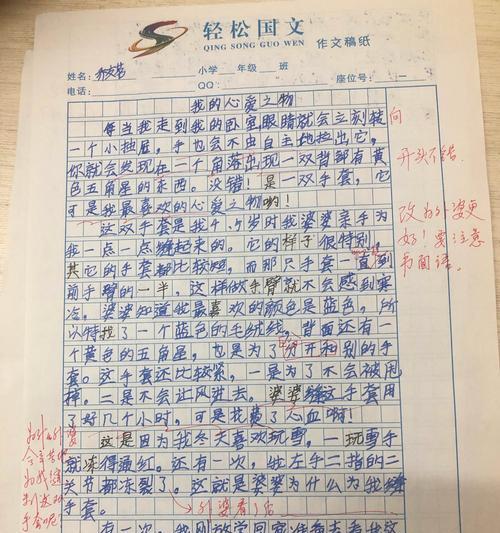 轻松国文
QING SONG GUO WEN 作文稿纸
姓名: 小学 年级 班
电话: QQ: 座位号:
我的心爱之物
每当我走到我的卧室眼睛就会立刻转向
一个小抽屉,手也会不由自主地拉出它,
你就会发现在一个角落出现一双背部有黄
色五角星的东西。没错!是一双手套,它
可是我最喜欢的心爱之物哟!
这双手套是我4、5岁时我婆婆亲手为
我一点一点缝起来的。它的样子很特别,
其它的手套都比较短,而那只手套一直到
前手臂的一半,这样做手臂就不会感到寒
冷。婆婆知道我最喜欢的颜色是蓝色,所
以特找了一个蓝色的毛绒线,背面还有一
个黄色的五角星,也是为了分开和别的手
套。这手套还比较紧,一是为了不会被甩
掉。二是不会让风进去。婆婆缝这手套用
了好几个小时,可是花费了心血啊!
这是因为我冬天喜欢玩雪,一玩雪手
就冻得通红。还有一次,我左手二指的二
关节都冻裂了。这就是婆婆为什么为我缝
手套。
有一次,我刚放学回家准备去看我这
开头不错
改为外婆更
好!要注意
书面语。
为什么外婆
会辛苦地
为我缝
制这双
手套呢?
外婆看了后